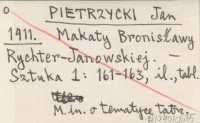 PIETRZYCKI Jan
1911. Makaty Bronisławy
Rychter-Janowskiej. –
Sztuka 1: 161-163, il., tabl.
M. in. o tematyce tatrz.